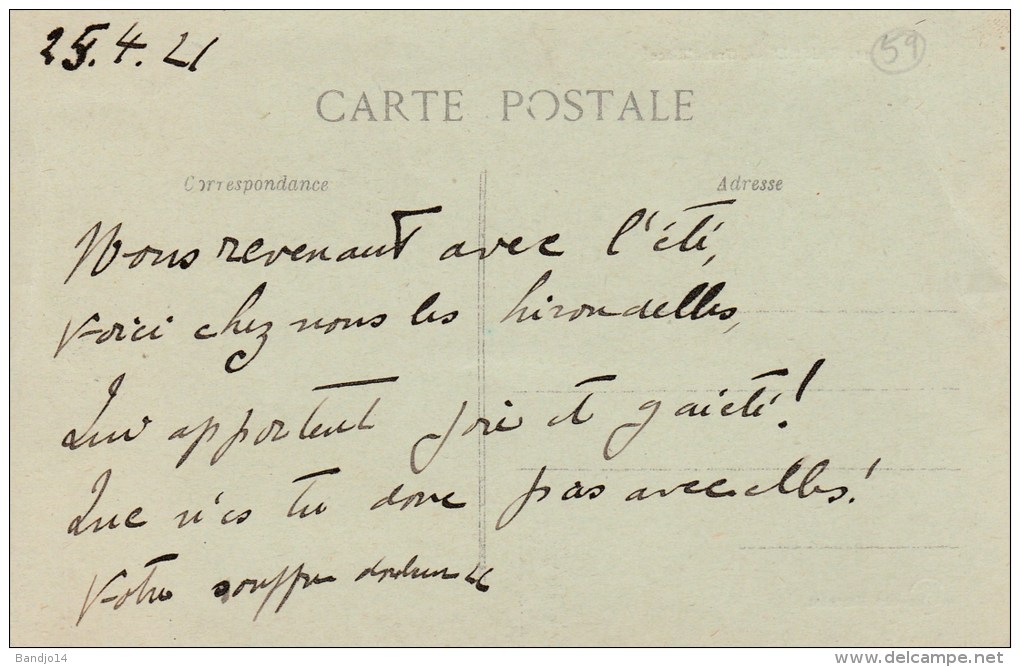 25.4.21
59
CARTE POSTALE
Correspondance
Adresse
Nous revenant avec l'été,
Voici chez nous les hirondelles,
Qui apportent joie et gaieté!
Que n'es tu donc pas avec elles!
Votre souffre
Bandjo14
delcampe.net